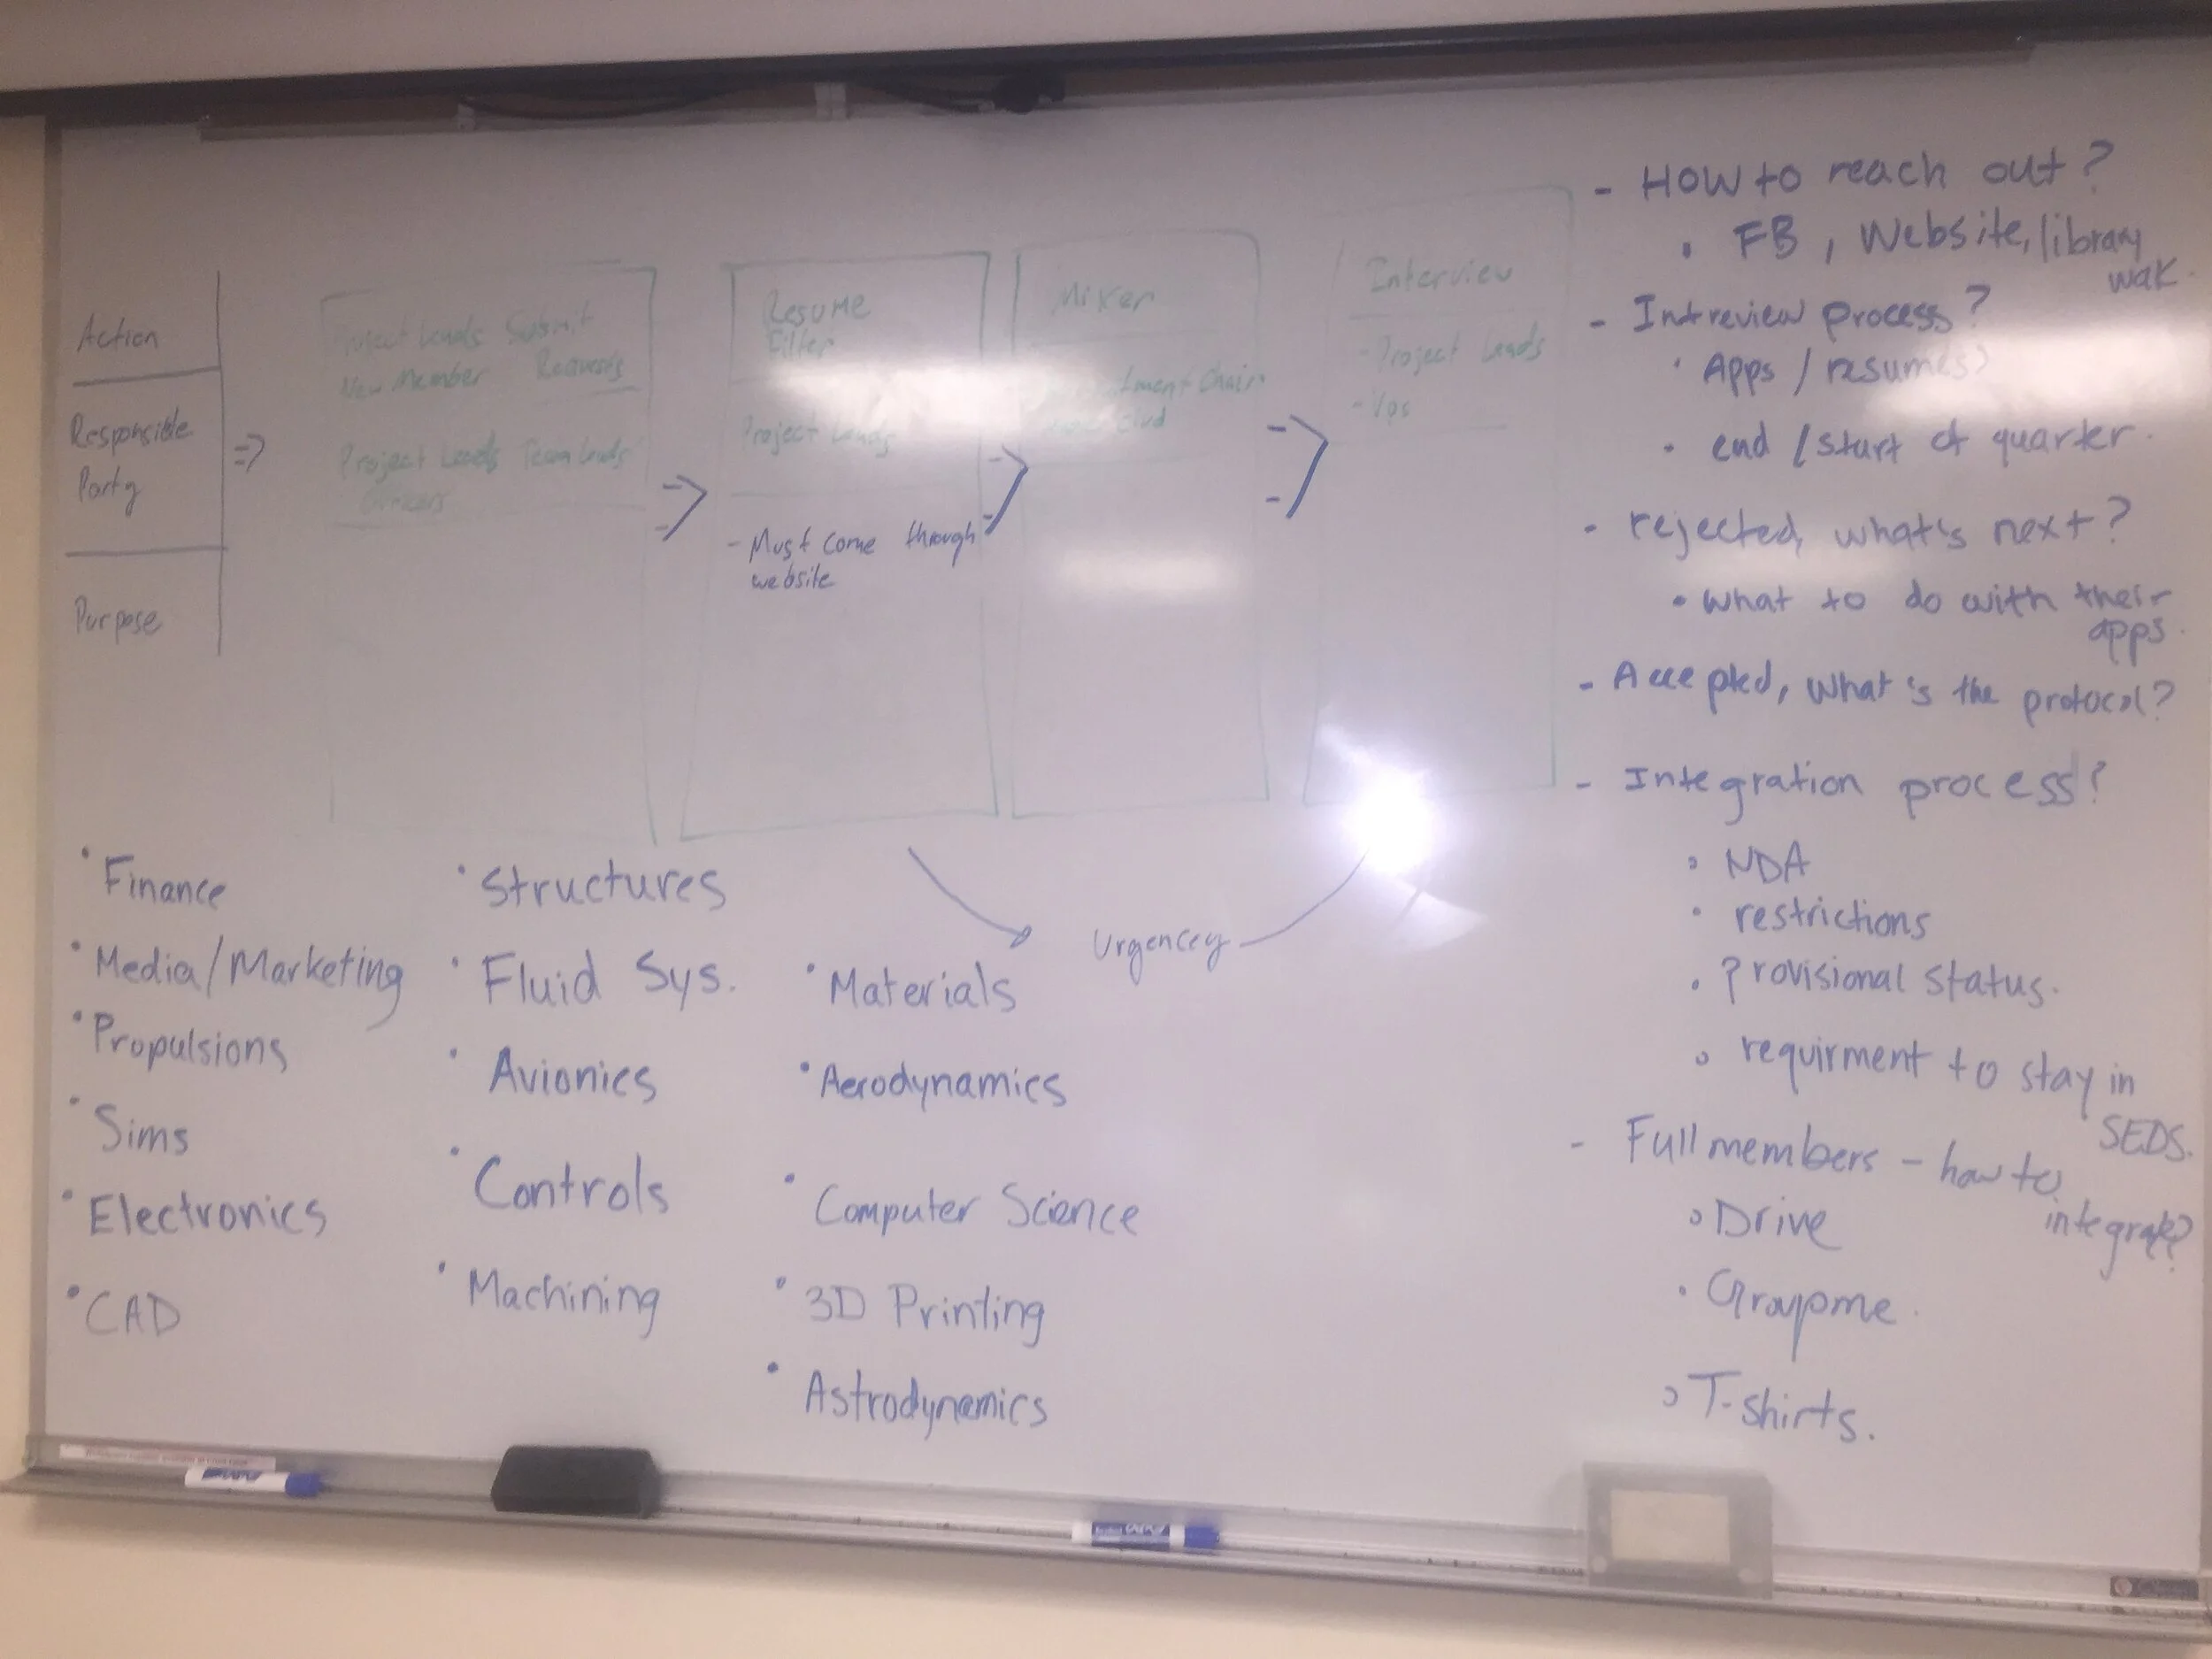 Action
Responsible
Party
Purpose
=>
Project Leads Submit
New Member Requests
Project Leads Team Leads
Officers
=>
Resume
Filter
Project Leads
- Must come through
website
=>
Mixer
Chair
=>
Interview
- Project Leads
- VPs
Urgencey
• Finance
• Media/Marketing
• Propulsions
• Sims
• Electronics
• CAD
• Structures
• Fluid Sys.
• Avionics
• Controls
• Machining
• Materials
• Aerodynamics
• Computer Science
• 3D Printing
• Astrodynamics
- HOW to reach out?
• FB, Website, library
wak.
- Intreview process?
• Apps / resumes
• end / start of quarter.
- rejected, what's next?
• what to do with their
apps.
- Accepted, what's the protocol?
- Integration process?
• NDA
• restrictions
• Provisional status.
• requirment to stay in
SEDS.
- Full members - how to
integrate?
• Drive
• Groupme.
• T-shirts.